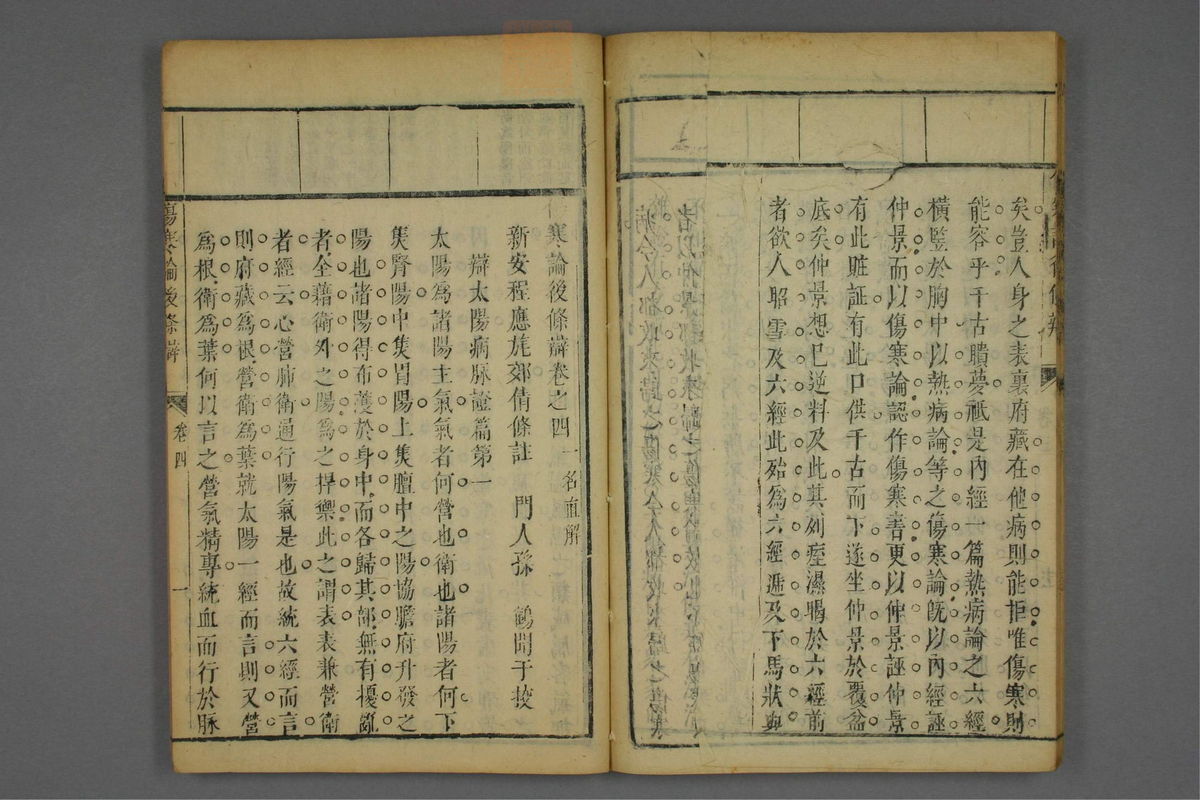 矣豈人身之表裏府藏在他病則能拒唯傷寒則
能容乎千古瞶夢祇是內經一篇熱病論之六經
橫竪於胸中以熱病論等之傷寒論旣以內經誣
仲景而以傷寒論認作傷寒書更以仲景誣仲景
有此賍証有此口供千古而下遂坐仲景於覆盆
底矣仲景想已逆料及此其列痓濕暍於六經前
者欲人昭雪及六經此殆爲六經遞及下馬狀與
寒論後條辯卷之四 一名直解
新安程應旄郊倩條註 門人孫 鶴聞于按
辯太陽病脉證篇第一
太陽爲諸陽主氣氣者何營也衛也諸陽者何下
焦腎陽中焦胃陽上焦膻中之陽協膽府升發之
陽也諸陽得布護於身中而各歸其部無有擾亂
者全藉衛外之陽爲之捍禦此之謂表表兼營衛
者經云心營肺衛通行陽氣是也故統六經而言
則府藏爲根營衛爲葉就太陽一經而言則又營
爲根衛爲葉何以言之營氣精專統血而行於脉
傷寒論後條辯 卷四 一